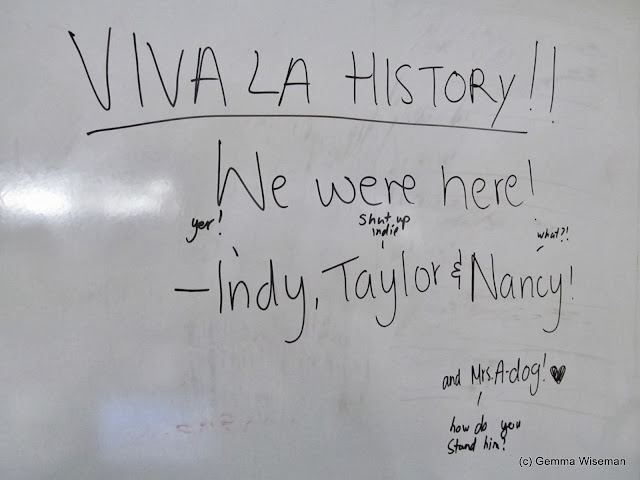 VIVA LA HISTORY!!
We were here!
yer!
shut up
indie
what?!
—Indy, Taylor & Nancy!
and Mrs. A-dog! ♥
how do you
stand him?
(c) Gemma Wiseman